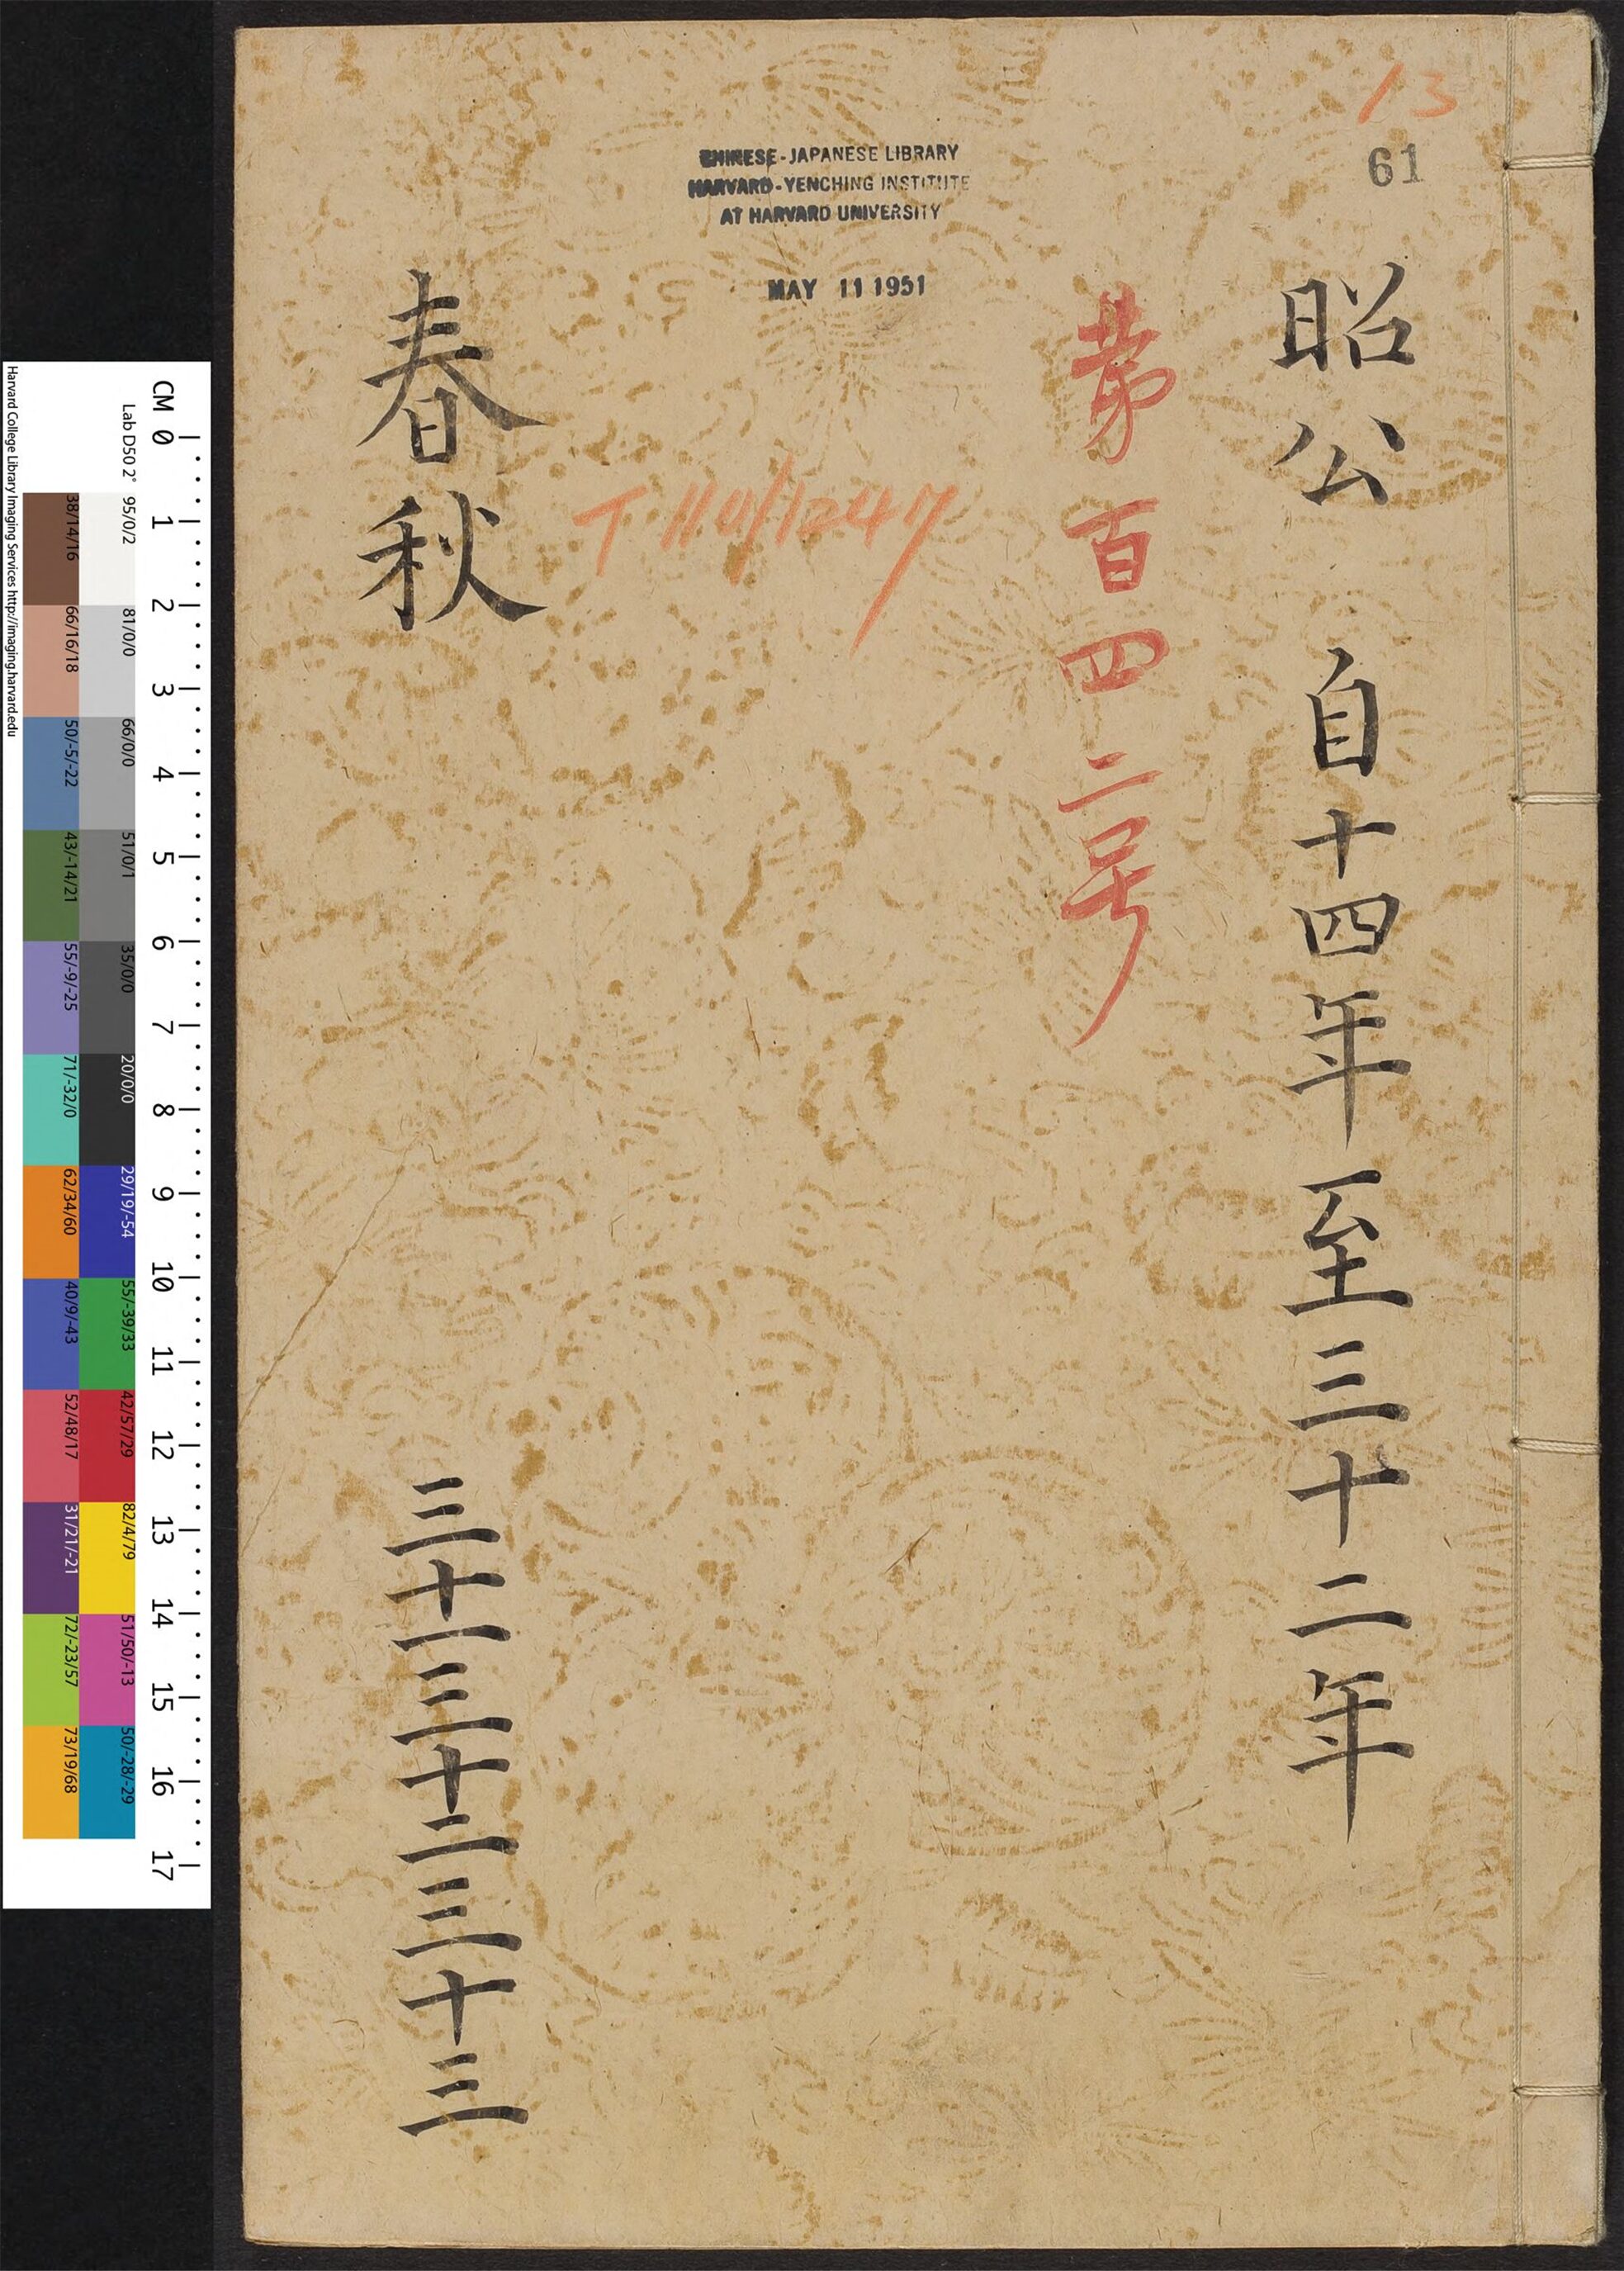 13
61
CHINESE-JAPANESE LIBRARY
HARVARD-YENCHING INSTITUTE
AT HARVARD UNIVERSITY
MAY 11 1951
昭公 自十四年至三十二年
第百四二号
T 110/1247
春秋 三十一三十二三十三
Harvard College Library Imaging Services http://imaging.harvard.edu
Lab D50 2°
95/0/2
81/0/0
66/0/0
51/0/1
35/0/0
20/0/0
29/19/-54
55/-39/33
42/57/29
82/4/79
51/50/-13
50/-28/-29
38/14/16
66/16/18
50/-5/-22
43/-14/21
55/-9/-25
71/-32/0
62/34/60
40/9/-43
52/48/17
31/21/-21
72/-23/57
73/19/68
CM 0 1 2 3 4 5 6 7 8 9 10 11 12 13 14 15 16 17